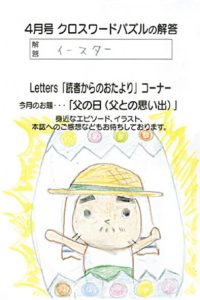 4月号 クロスワードパズルの解答
解答
イースター
Letters「読者からのおたより」コーナー
今月のお題･･･「父の日(父との思い出)」
身近なエピソード、イラスト、
本誌へのご感想などもお待ちしております。